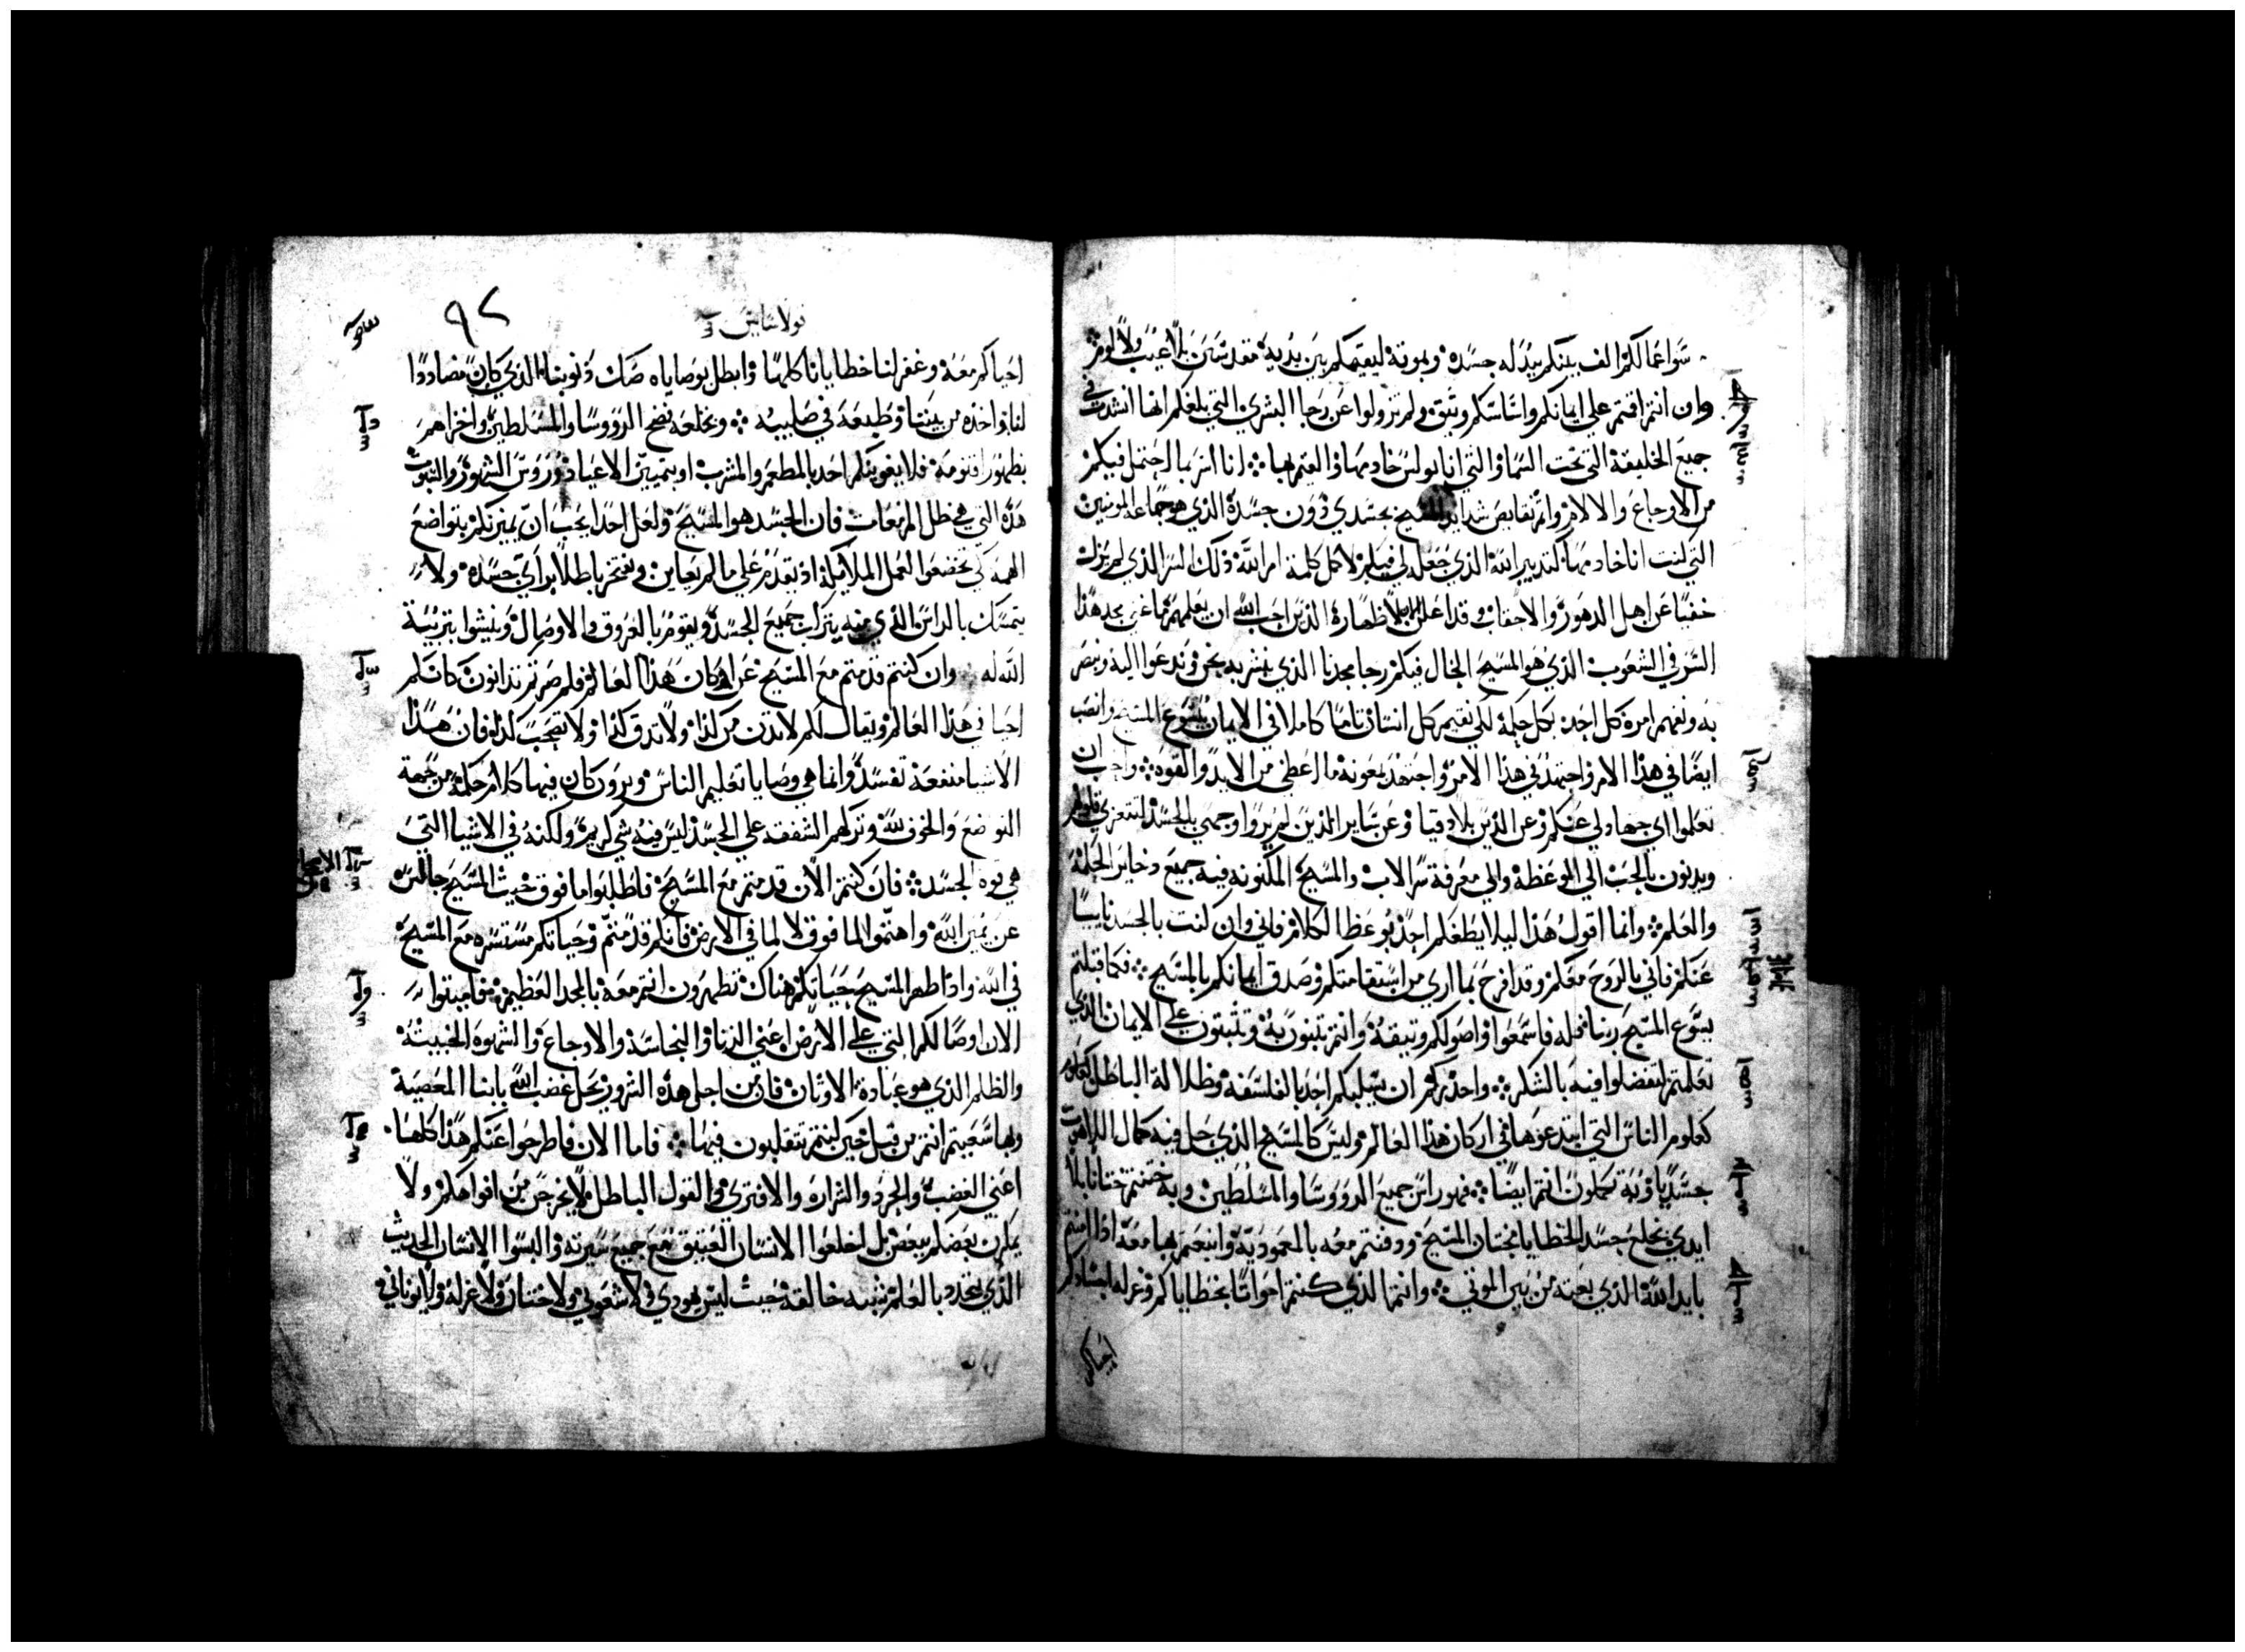 سوا عمالكم الف بينكم ببدله جسده وبموته ليقيمكم بين يديه مقدسين بلا عيب ولا لوم
وان انتم اقمتم علي ايمانكم واساسكم وثيق ولم تزولوا عن رجا البشري التي بلغكم انها انشدت في
جميع الخليقة التي تحت السما والتي انا بولس خادمها والقيم بها انا اسر بما احتمل فيكم
من الاوجاع والالام واتم نقايص شدايد المسيح بجسدي دون جسده الذي هو جماعه المومنين
التي كنت انا خادمها كتدبير الله الذي جعله لي فيكم لاكمل كلمة امر الله ذلك السر الذي لم يزل
خفيا عن اهل الدهور والاحقاب وقد اعلن الان لاطهاره الذين احب الله ان يعلمهم ما غني مجد هذا
السر في الشعوب الذي هو المسيح الحال فيكم رجا مجدنا الذي نبشر به نحن وندعوا اليه ونبصر
به ونفهم امره كل احد بكل حكمة لكي نقيم كل انسان تاما كاملا في الايمان بيسوع المسيح وانصب
ايضا في هذا الامر واجتهد في هذا الامر واجتهد بمعونة ما اعطي من الايد والقوه واحب ان
تعلموا اي جهاد لي عنكم وعن الذين بلادقيا وعن ساير الذين لم يروا وجهي بالجسد لتتعزي قلوبهم
ويدنون بالحب الي الموعظة والي معرفة سر الاب والمسيح المكنونه فيه جميع دخاير الحكمة
والعلم وانما اقول هذا ليلا يطغيكم احد بوعظ الكلام فاني وان كنت بالجسد نايسا
عنكم فاني بالروح معكم وقد افرح بما اري من استقامتكم وصدق ايمانكم بالمسيح فكما قبلتم
يسوع المسيح ربنا فبه فاسمعوا واصولكم وثيقة وانتم تبنون به وتثبتون علي الايمان الذي
تعلمتم لتفضلوا فيه بالشكر واحذركم ان يسلبكم احد بالفلسفه وظلالة الباطل كعلوم
كعلوم الناس التي ابتدعوها في اركان هذا العالم وليس كالمسيح الذي حل فيه كمال اللاهوت
جسديا وبه تكملون انتم ايضا فهو راس جميع الرووسا والمسلطين وبه ختنتم ختانا بلا
ايدي بخلع جسد الخطايا بختان المسيح ودفنتم معه بالمعموديه وانبعثتم بها معه اذ امنتم
بايد الله الذي بعثه من بين الموتي وانتم الذي كنتم امواتا بخطاياكم وغرله اجسادكم
احياكم
قولاسايس
٩٢
احياكم معه وغفر لنا خطايانا كلها وابطل بوصاياه صك ذنوبنا الذي كان مضاددا
لنا واخذه من بيننا وطبعه في صليبه وبخلعه فضح الرووسا والمسلطين واخزاهم
بظهور اقنومه فلا يغوينكم احد بالمطعم والمشرب او بتمييز الاعياد وروس الشهور والسبوت
هذه التي هي ظل المزمعات فان الجسد هو المسيح ولعل احدا يحب ان يميزكم بتواضع
الهمه كي تخضعوا لعمل الملايكة اذ يقدم علي ما لم يعاين ويفتخر باطلا براي جسده ولا
يتمسك بالراس الذي منه يتركب جميع الجسد ويقوم بالعروق والاوصال وينشوا بتربية
الله له وان كنتم قد متم مع المسيح عن اركان هذا العالم فلم صرتم تدانون كانكم
احيا في هذا العالم ويقال لكم لا تدن من كذا ولا تدق كذا ولا تصحب كذا فان هذا
الاشيا منفعة تفسد وانما هي وصايا تعليم الناس ويرون كان فيها كلام حكمة من جهة
التوضع والخوف لله وتركهم الشفقه علي الجسد ليس فيه شي كريم ولكنه في الاشيا التي
هي قوة الجسد فان كنتم الان قد متم مع المسيح فاطلبوا ما فوق حيث المسيح جالس
عن يمين الله واهتموا لما فوق لا لما في الارض فانكم قد متم وحياتكم مستتره مع المسيح
في الله واذا ظهر المسيح حياتكم هناك تظهرون انتم معه بالمجد العظيم فاميتوا
الان اوصالكم التي علي الارض اعني الزنا والنجاسة والاوجاع والشهوه الخبيثة
والظلم الذي هو عبادة الاوثان فان من اجل هذه الشرور يحل غضب الله بابنا المعصية
وبها سعيتم انتم من قبل حين كنتم تتقلبون فيها فاما الان فاطرحوا عنكم هذا كلها
اعني الغضب والحرد والشراره والافتري والقول الباطل لا يخرجن من افواهكم ولا
يمكرن بعضكم ببعض بل اخلعوا الانسان العتيق مع جميع سيرته والبسوا الانسان الحديث
الذي يتجدد بالعلم بشبه خالقه حيث ليس يهودي ولا شعوبي ولا ختنان ولا غرله ولا يوناني